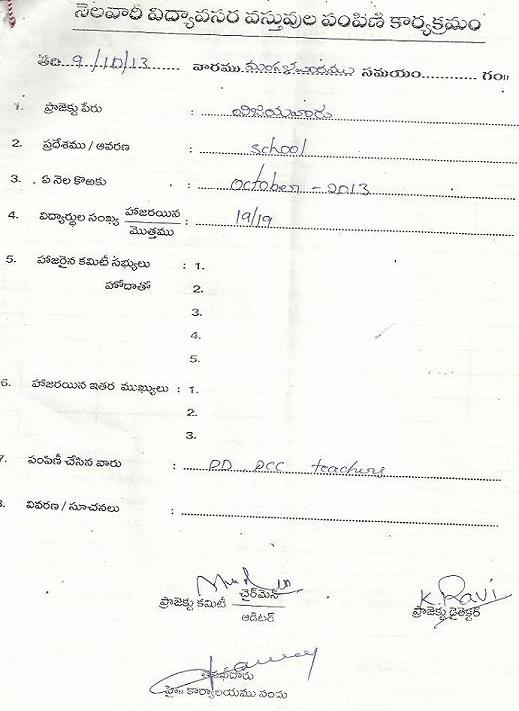 నెలవారీ విద్యావసర వస్తువుల పంపిణి కార్యక్రమం
తేది 9/10/13 వారము మంగళవారము సమయం............ గం॥
1. ప్రాజెక్టు పేరు : విజయవాడ
2. ప్రదేశము / ఆవరణ : school
3. ఏ నెల కొఱకు : october - 2013
4. విద్యార్థుల సంఖ్య హాజరయిన / మొత్తము : 19/19
5. హాజరైన కమిటీ సభ్యులు : 1.
హోదాతో 2.
3.
4.
5.
6. హాజరయిన ఇతర ముఖ్యులు : 1.
2.
3.
7. పంపిణీ చేసిన వారు : PD DCC teachers
8. వివరణ / సూచనలు :
ప్రాజెక్టు కమిటీ ఛైర్మెన్
ఆడిటర్
K. Ravi
ప్రాజెక్టు డైరెక్టర్
తనిఖీదారు
హై॥ కార్యాలయము నందు